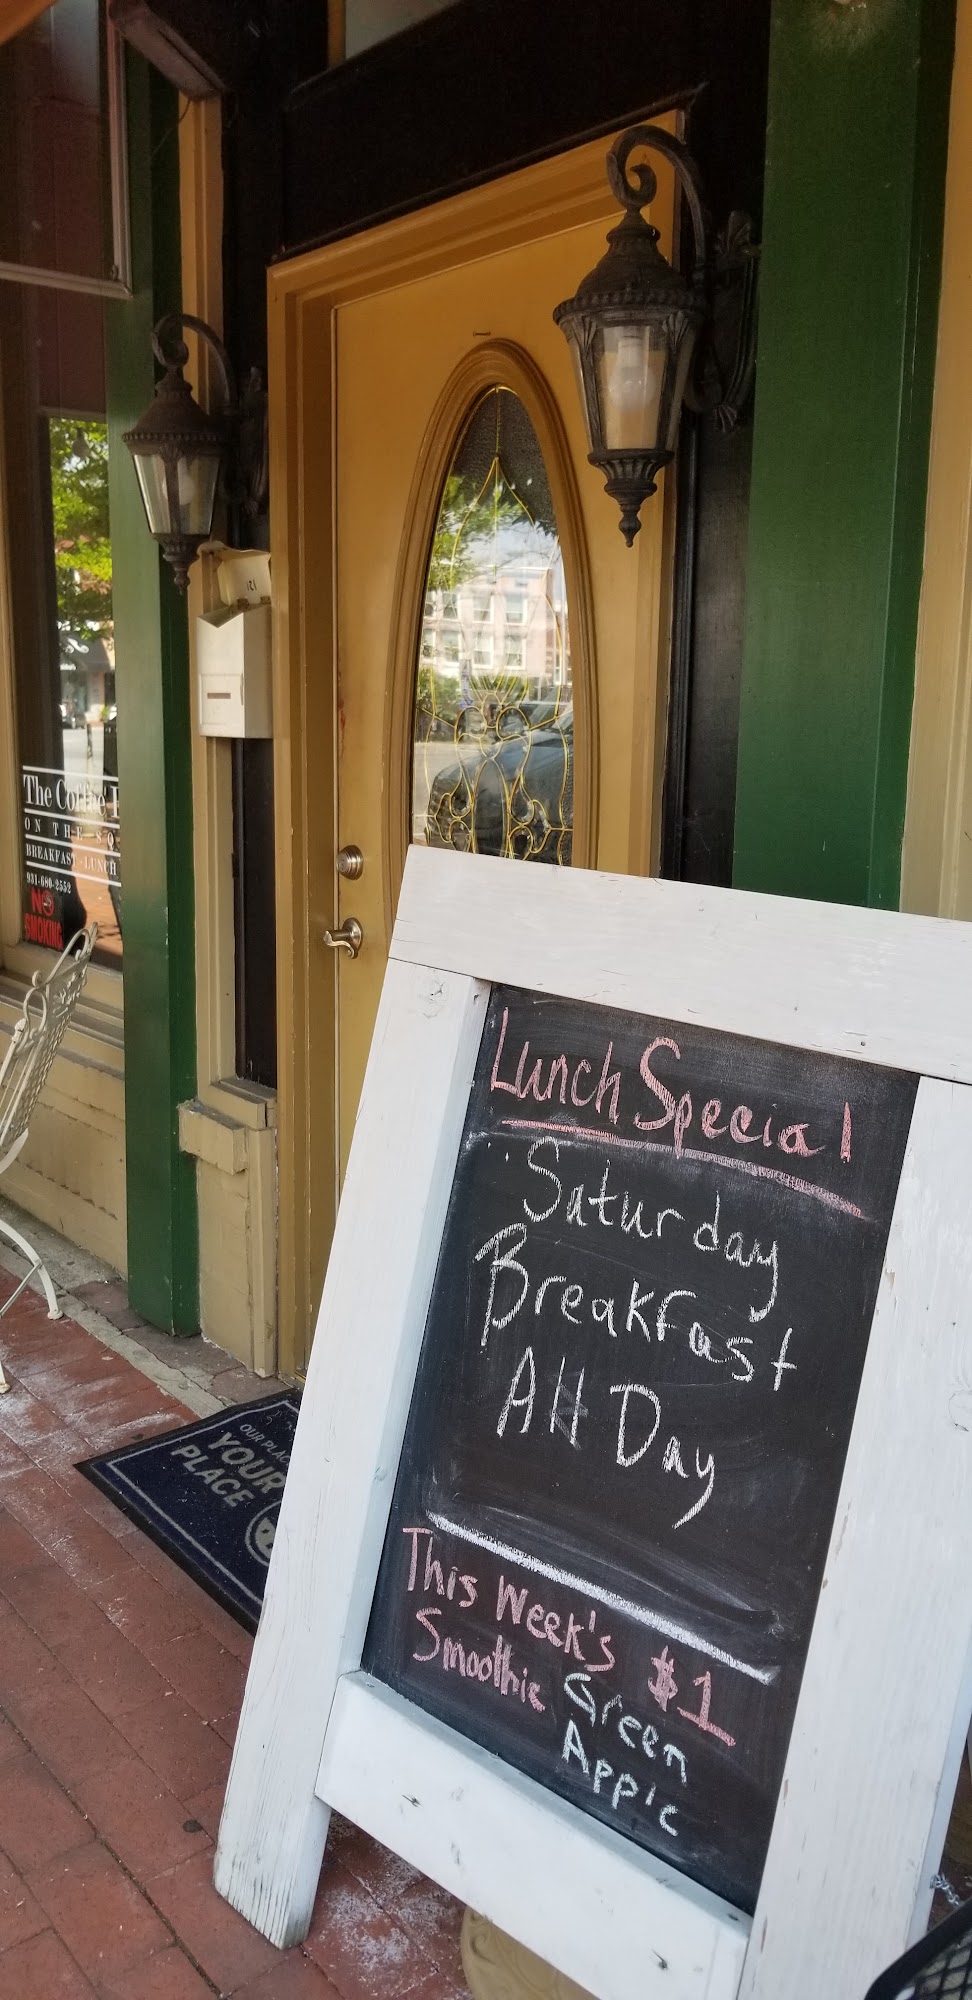 121
The Coffee
ON THE SQ
BREAKFAST - LUNCH
931-680-2552
NO
SMOKING
OUR PLA
YOUR
PLACE
Lunch Special
Saturday
Breakfast
All Day
This Week's $1
Smoothie Green
Apple